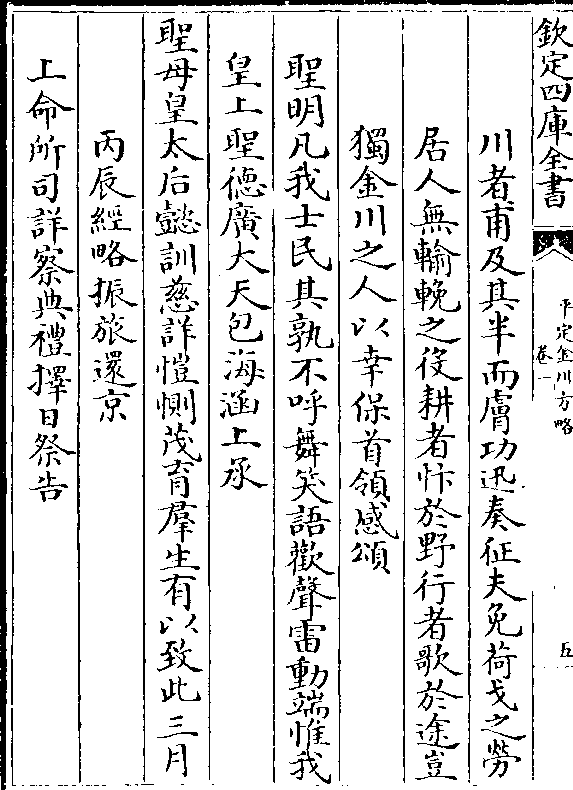 欽定四庫全書
平定金川方略
卷一
五
川者甫及其半而膚功迅奏征夫免荷戈之勞
居人無輪輓之役耕者忭於野行者歌於途豈
獨金川之人以幸保首領感頌
聖明凡我士民其孰不呼舞笑語歡聲雷動端惟我
皇上聖德廣大天包海涵上承
聖母皇太后懿訓慈詳愷惻茂育羣生有以致此三月
丙辰經略振旅還京
上命所司詳察典禮擇日祭告